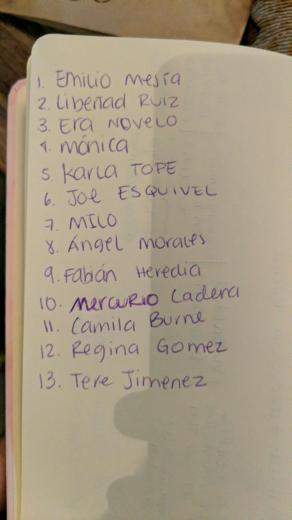 1. Emilio Mejía
2. Libertad Ruiz
3. Era NOVELO
4. Mónica
5. Karla TOPE
6. Joe ESQUIVEL
7. MILO
8. Ángel Morales
9. Fabián Heredia
10. MercuRIO Cadena
11. Camila Burne
12. Regina Gomez
13. Tere Jimenez